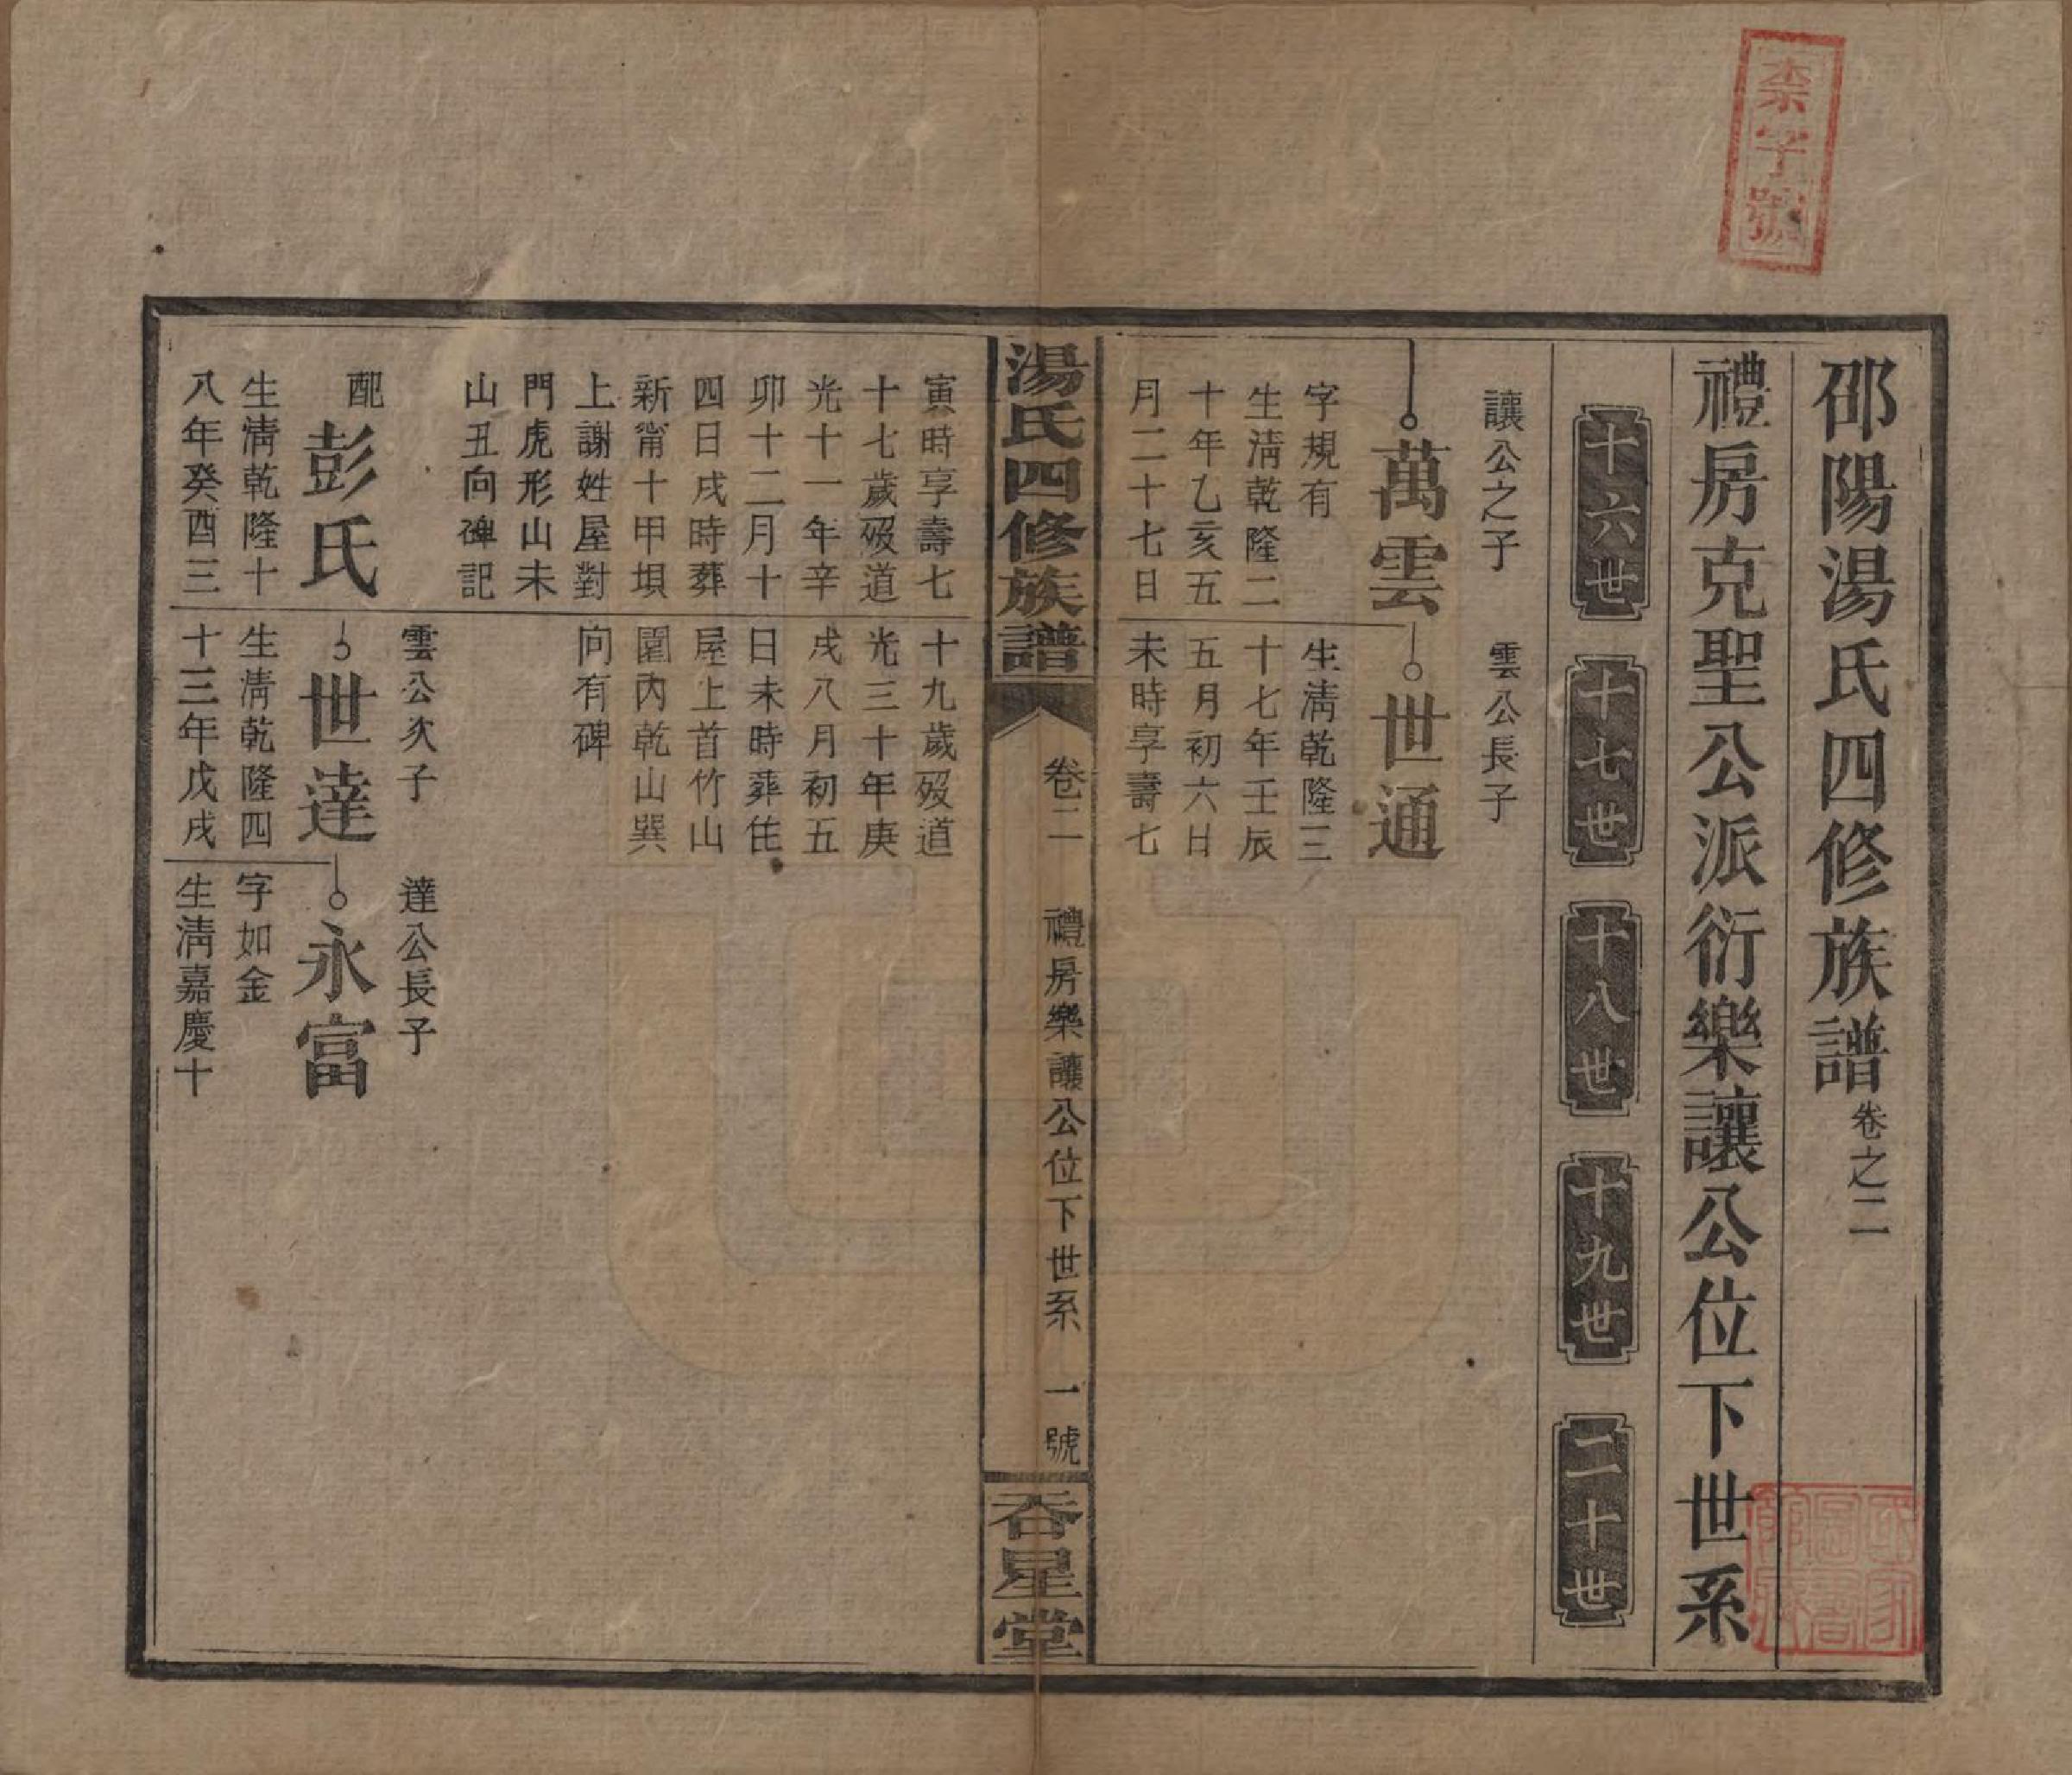 柰字號
邵陽湯氏四修族譜卷之二
禮房克聖公派衍樂讓公位下世系
十六世
十七世
十八世
十九世
二十世
讓公之子
萬雲
字規有
生淸乾隆二
十年乙亥五
月二十七日
寅時享壽七
十七歲歿道
光十一年辛
卯十二月十
四日戌時葬
新甯十甲垻
上謝姓屋對
門虎形山未
山丑向碑記
配彭氏
生淸乾隆十
八年癸酉三
雲公長子
世通
生淸乾隆三
十七年壬辰
五月初六日
未時享壽七
十九歲歿道
光三十年庚
戌八月初五
日未時葬住
屋上首竹山
園內乾山巽
向有碑
雲公次子
世達
生淸乾隆四
十三年戊戌
達公長子
永富
字如金
生淸嘉慶十
湯氏四修族譜
卷二
禮房樂讓公位下世系
一號
吞星堂